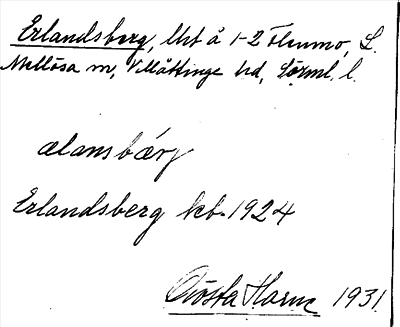 Erlandsberg, lht å 1-2 Flumo, L.
Mellösa sn, Villåttinge hd, Sörml. l.
ælansbærj
Erlandsberg kb. 1924
Gösta Harne 1931